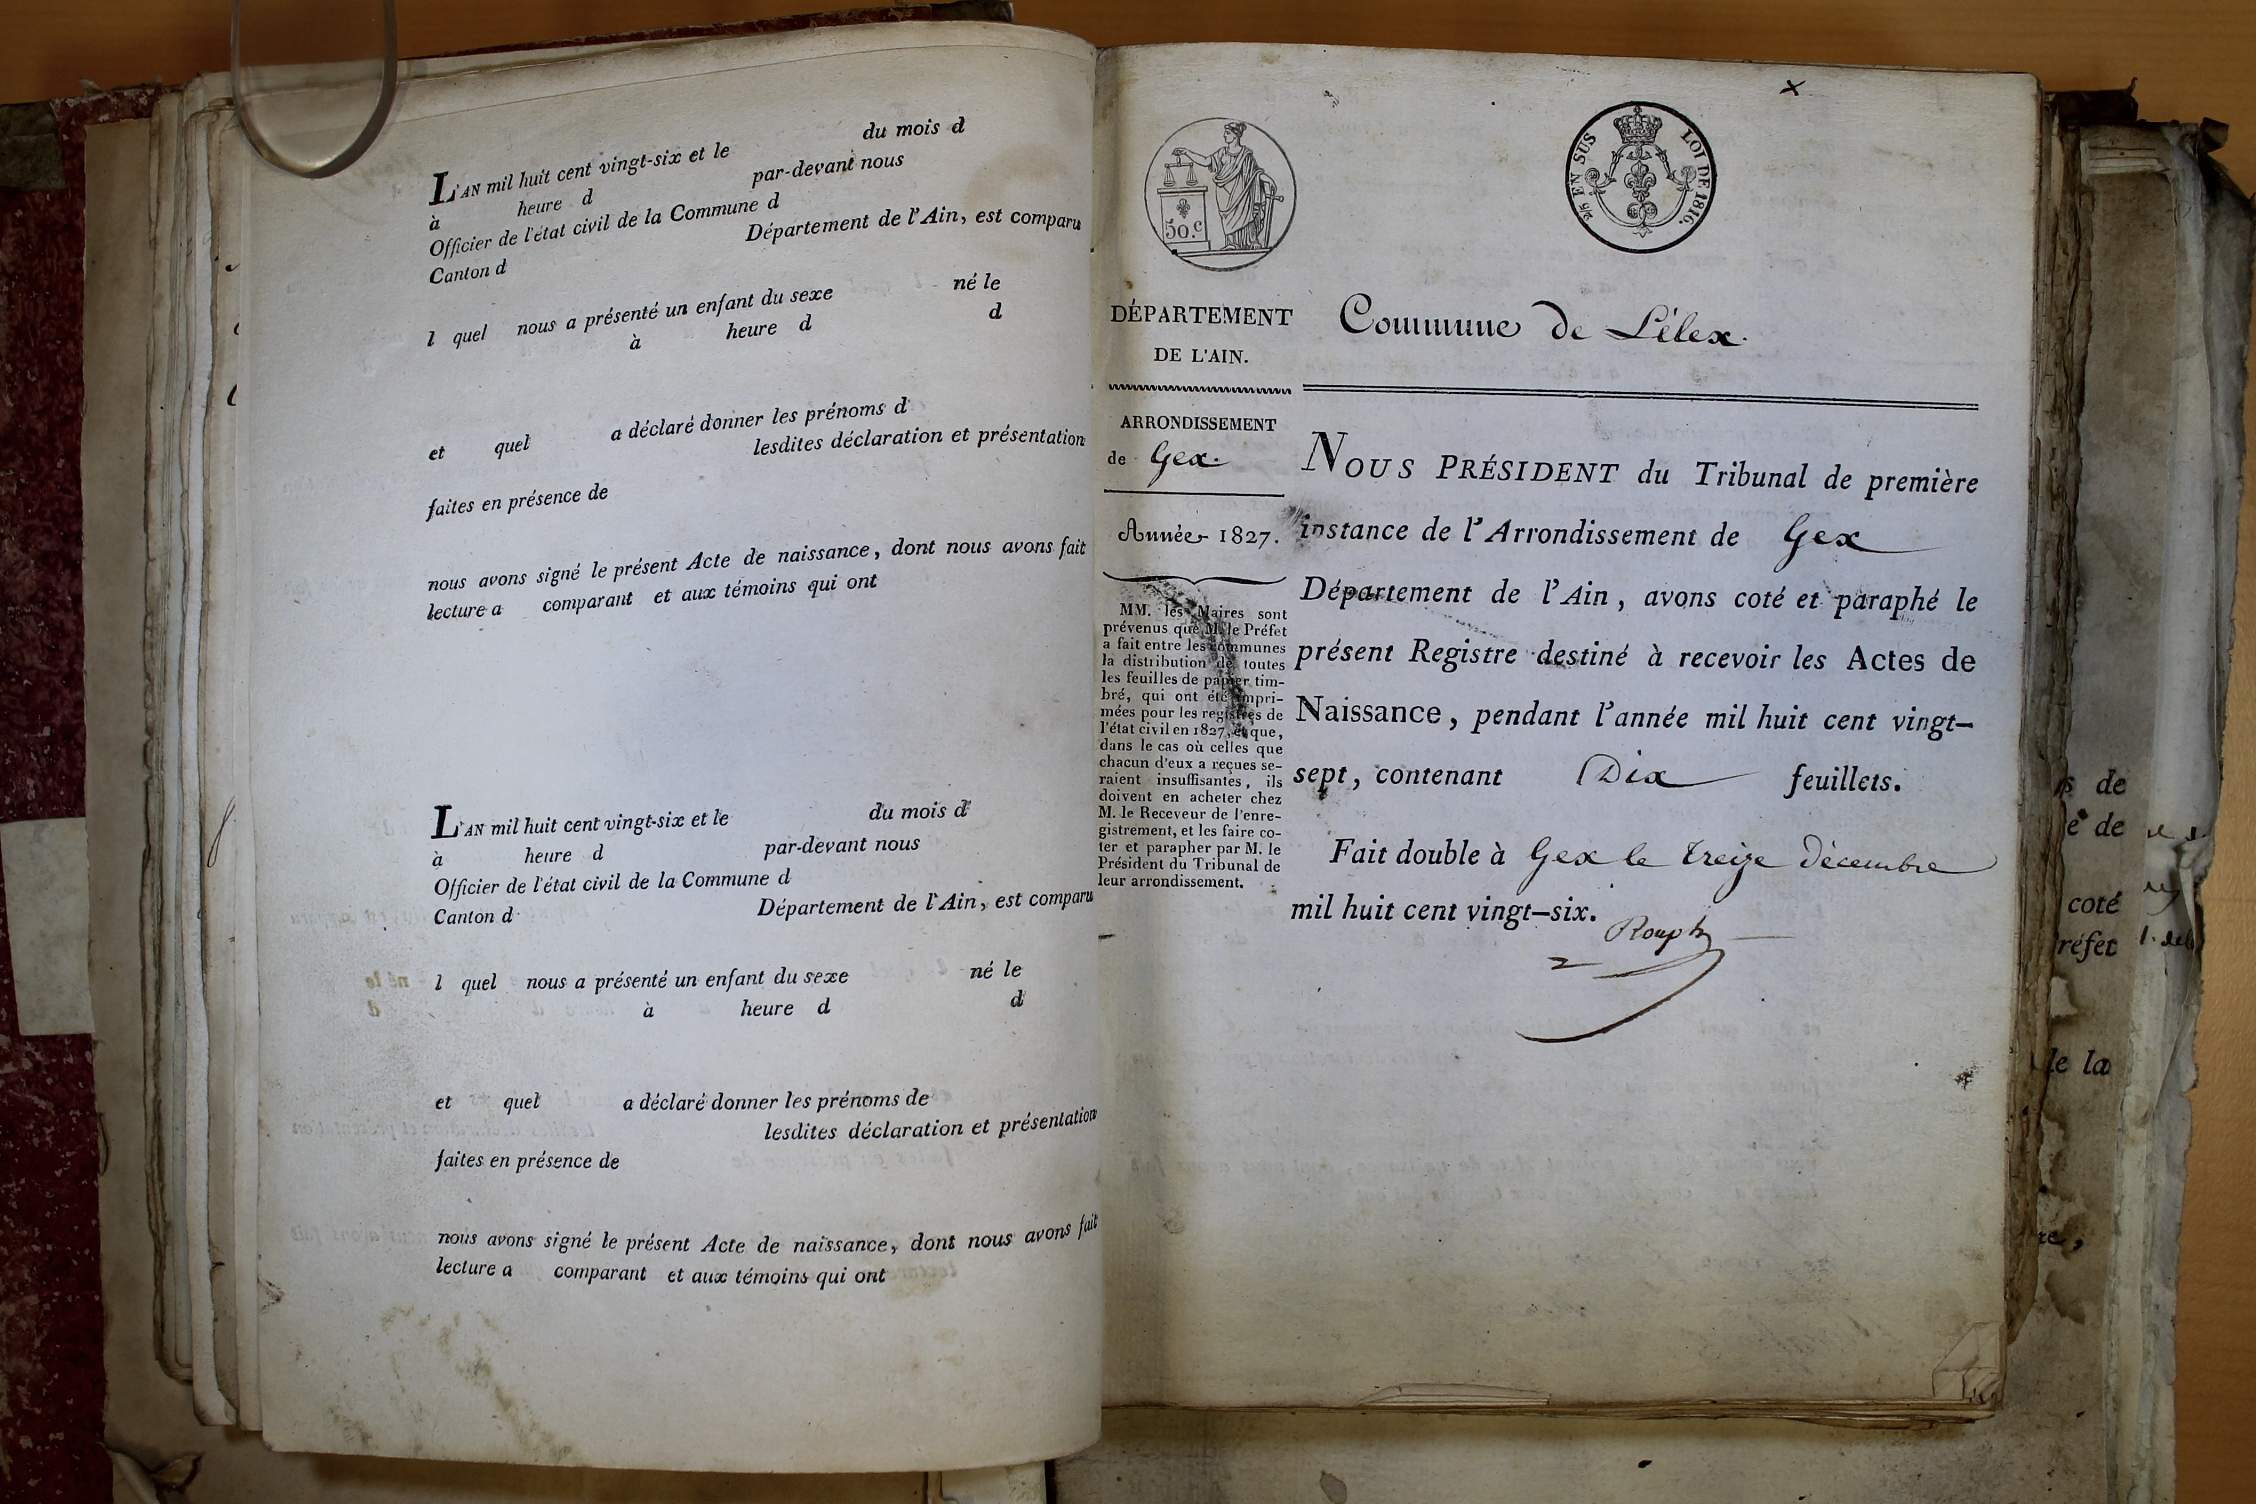 L'AN mil huit cent vingt-six et le du mois d
à heure d par-devant nous
Officier de l'état civil de la Commune d
Canton d Département de l'Ain, est comparu
l quel nous a présenté un enfant du sexe né le
à heure d d
et quel a déclaré donner les prénoms d
lesdites déclaration et présentation
faites en présence de
nous avons signé le présent Acte de naissance, dont nous avons fait
lecture a comparant et aux témoins qui ont
L'AN mil huit cent vingt-six et le du mois d
à heure d par-devant nous
Officier de l'état civil de la Commune d
Canton d Département de l'Ain, est comparu
l quel nous a présenté un enfant du sexe né le
à heure d d
et quel a déclaré donner les prénoms de
lesdites déclaration et présentation
faites en présence de
nous avons signé le présent Acte de naissance, dont nous avons fait
lecture a comparant et aux témoins qui ont
x
50.c
EN SUS LOI DE 1816.
DÉPARTEMENT
DE L'AIN.
Commune de Lélex.
ARRONDISSEMENT
de Gex.
Année 1827.
MM. les Maires sont
prévenus que M. le Préfet
a fait entre les communes
la distribution de toutes
les feuilles de papier tim-
bré, qui ont été impri-
mées pour les registres de
l'état civil en 1827, et que,
dans le cas où celles que
chacun d'eux a reçues se-
raient insuffisantes, ils
doivent en acheter chez
M. le Receveur de l'enre-
gistrement, et les faire co-
ter et parapher par M. le
Président du Tribunal de
leur arrondissement.
NOUS PRÉSIDENT du Tribunal de première
instance de l'Arrondissement de Gex
Département de l'Ain, avons coté et paraphé le
présent Registre destiné à recevoir les Actes de
Naissance, pendant l'année mil huit cent vingt-
sept, contenant Dix feuillets.
Fait double à Gex le treize décembre
mil huit cent vingt-six.
Rouph
de
de
coté
réfet
de la